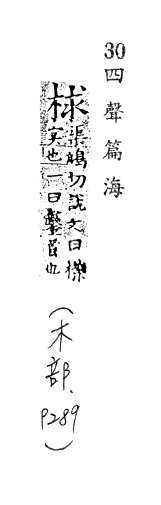 30四聲篇海
梂渠鳩切說文曰櫟
實也一曰鑿首也
(木部、P289)